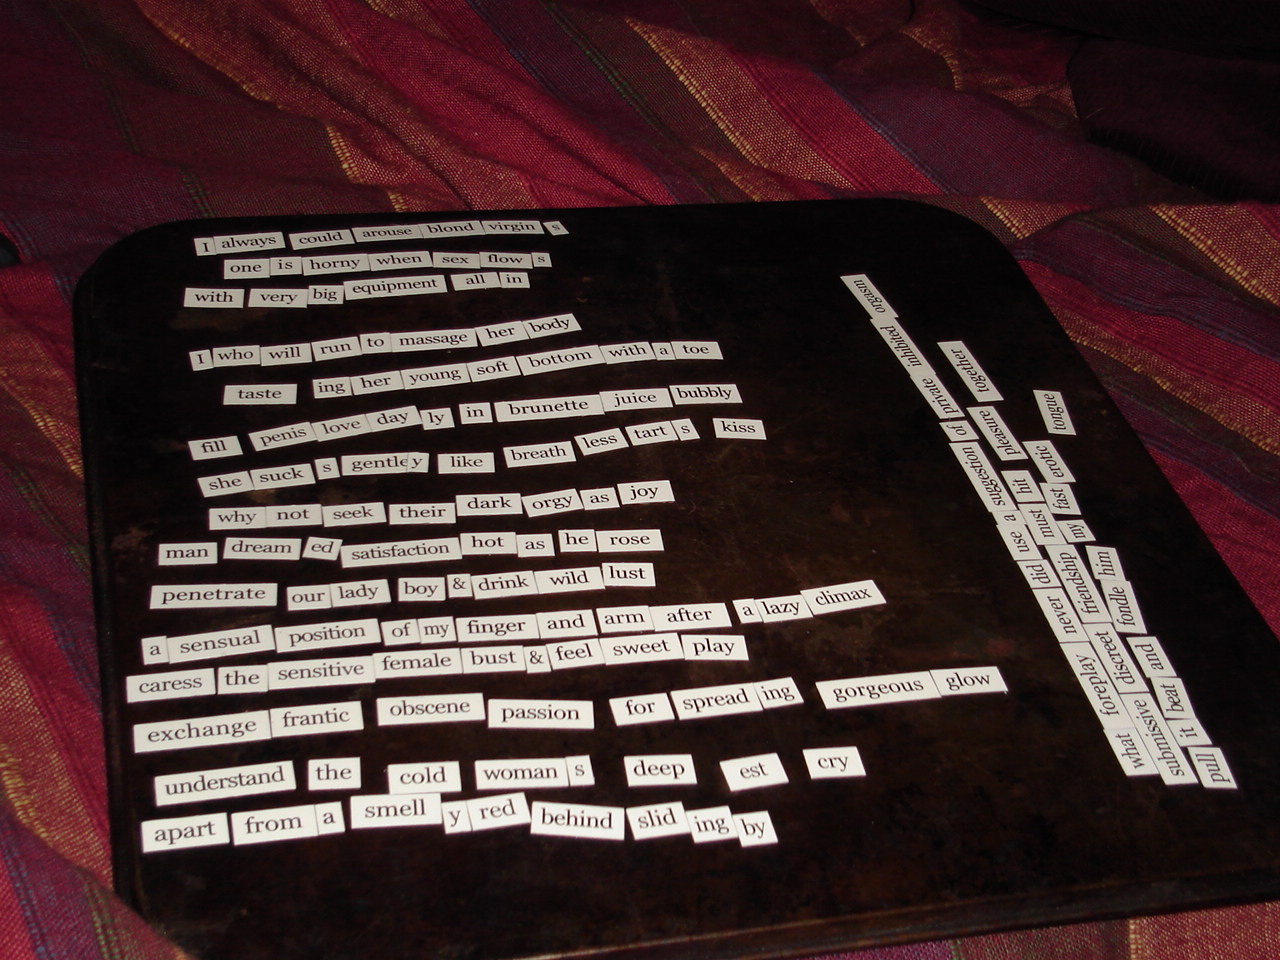 I always could arouse blond virgin s
one is horny when sex flow s
with very big equipment all in
I who will run to massage her body
taste ing her young soft bottom with a toe
fill penis love day ly in brunette juice bubbly
she suck s gentle y like breath less tart s kiss
why not seek their dark orgy as joy
man dream ed satisfaction hot as he rose
penetrate our lady boy & drink wild lust
a sensual position of my finger and arm after a lazy climax
caress the sensitive female bust & feel sweet play
exchange frantic obscene passion for spread ing gorgeous glow
understand the cold woman s deep est cry
apart from a smell y red behind slid ing by
what foreplay never did use a suggestion of private inhibited orgasm
submissive discreet friendship must hit pleasure together
pull it beat and fondle him my fast erotic tongue